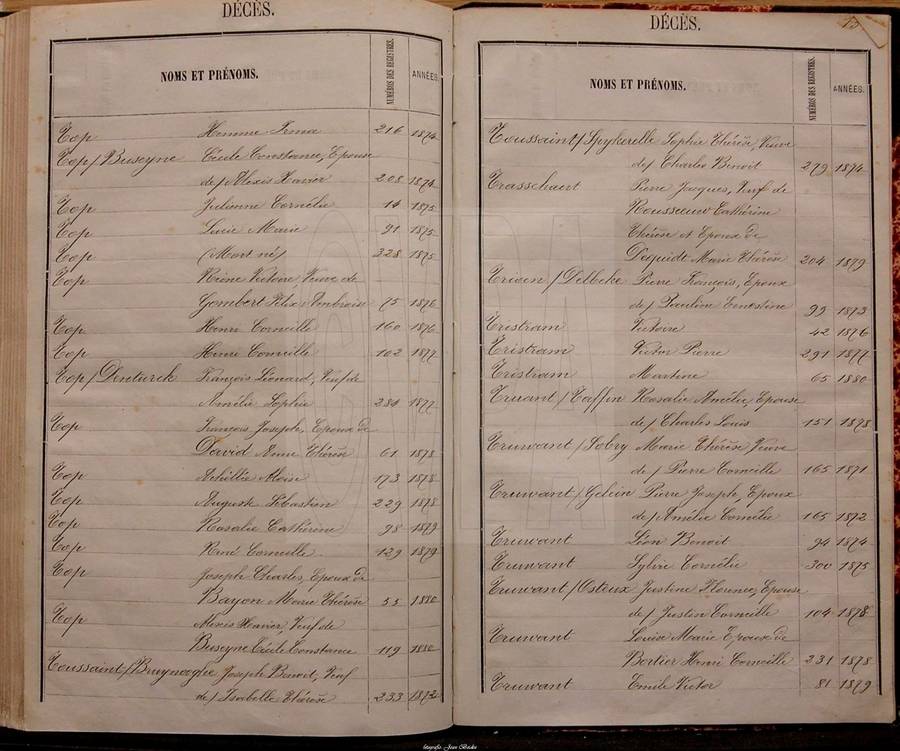 DÉCÈS.
NOMS ET PRÉNOMS. NUMÉROS DES REGISTRES. ANNÉES.
Top Homme Irma 216 1874
Top / Buseyne Cécile Constance, Epouse
de / Alexis Xavier 208 1874
Top Julienne Cornélie 14 1875
Top Lucie Marie 91 1875
Top (Mort né) 328 1875
Top Reine Victoire, Veuve de
Gombert Félix Ambroise 75 1876
Top Henri Corneille 160 1876
Top Henri Corneille 102 1877
Top / Dinturck François Léonard, Veuf de
Amélie Sophie 284 1877
Top François Joseph, Epoux de
David Anne Thérèse 61 1878
Top Achille Aloïse 173 1878
Top Auguste Sébastien 229 1878
Top Rosalie Cathérine 98 1879
Top René Corneille 129 1879
Top Joseph Charles, Epoux de
Bayon Marie Thérèse 55 1880
Top Alexis Xavier, Veuf de
Buseyne Cécile Constance 119 1880
Toussaint / Bruynoghe Joseph Benoit, Veuf
de / Isabelle Thérèse 233 1872
DÉCÈS.
NOMS ET PRÉNOMS. NUMÉROS DES REGISTRES. ANNÉES.
Toussaint / Spykerelle Sophie Thérèse, Veuve
de / Charles Benoit 279 1874
Trasschaert Pierre Jacques, Veuf de
Rousseeuw Cathérine
Thérèse et Epoux de
Dequidt Marie Thérèse 204 1879
Trioen / Delbeke Pierre François, Epoux
de / Pauline Ernestine 99 1873
Tristram Victoire 42 1876
Tristram Victor Pierre 291 1877
Tristram Martine 65 1880
Truant / Taffin Rosalie Amélie, Epouse
de / Charles Louis 151 1878
Truwant / Sobry Marie Thérèse Veuve
de / Pierre Corneille 165 1871
Truwant / Gelein Pierre Joseph, Epoux
de / Amélie Cornélie 165 1872
Truwant Léon Benoit 94 1874
Truwant Sylvie Cornélie 300 1875
Truwant / Osteux Justine Florence, Epouse
de / Justin Corneille 104 1878
Truwant Louise Marie Epouse de
Bortier Henri Corneille 231 1878
Truwant Emile Victor 81 1879